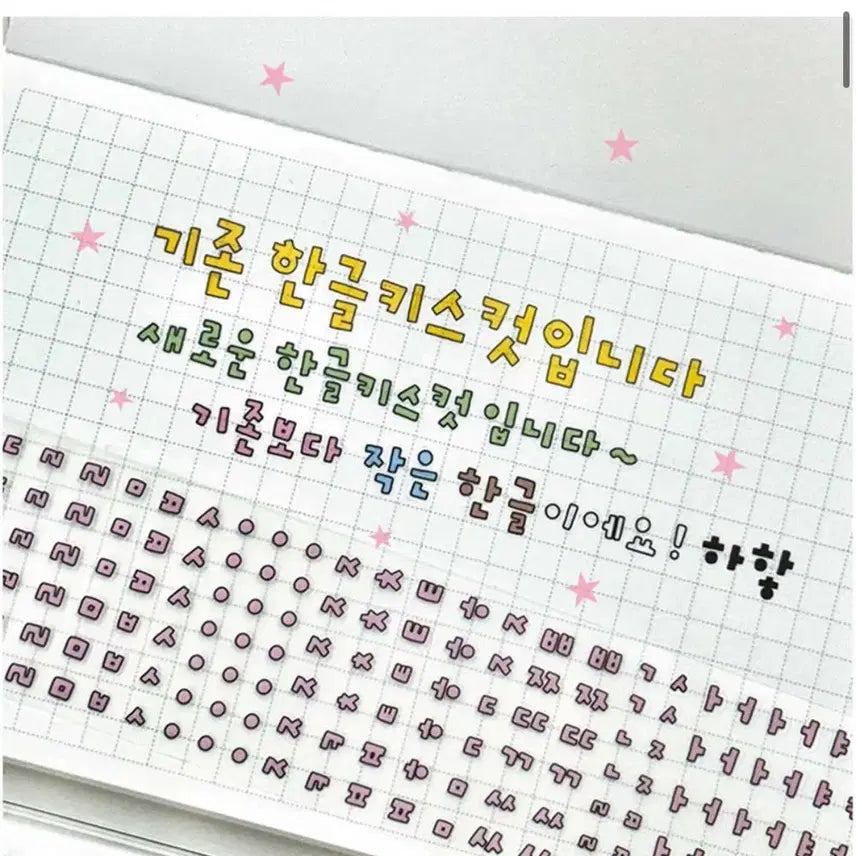 기존 한글키스컷입니다
새로운 한글키스컷 입니다~
기존보다 작은 한글이에요! 하핳
ㄷ ㄹ ㄹ ㅁ ㅂ ㅅ ㅇ ㅇ ㅇ ㅈ ㅊ ㅌ ㅎ ㅈ ㅃ ㅃ ㄱ ㅅ ㅏ ㅓ ㅏ ㅓ ㅑ
ㄹ ㄹ ㅁ ㅂ ㅅ ㅇ ㅇ ㅇ ㅈ ㅊ ㅌ ㅎ ㅈ ㅉ ㅉ ㄱ ㅅ ㅏ ㅓ ㅏ ㅓ ㅑ
ㄹ ㄹ ㅁ ㅂ ㅅ ㅇ ㅇ ㅇ ㅈ ㅊ ㅌ ㅎ ㄷ ㄸ ㄸ ㄴ ㅈ ㅏ ㅓ ㅏ ㅓ ㅑ
ㄹ ㅁ ㅂ ㅅ ㅇ ㅇ ㅇ ㅈ ㅊ ㅌ ㅎ ㄷ ㄲ ㄲ ㄴ ㅈ ㅏ ㅓ ㅏ ㅓ
ㄹ ㅁ ㅂ ㅅ ㅇ ㅇ ㅇ ㅈ ㅋ ㅍ ㅎ ㅁ ㅆ ㅆ ㄹ
ㄹ ㅁ ㅂ ㅅ ㅇ ㅇ ㅇ ㅈ ㅋ ㅍ ㅍ ㅁ ㅆ